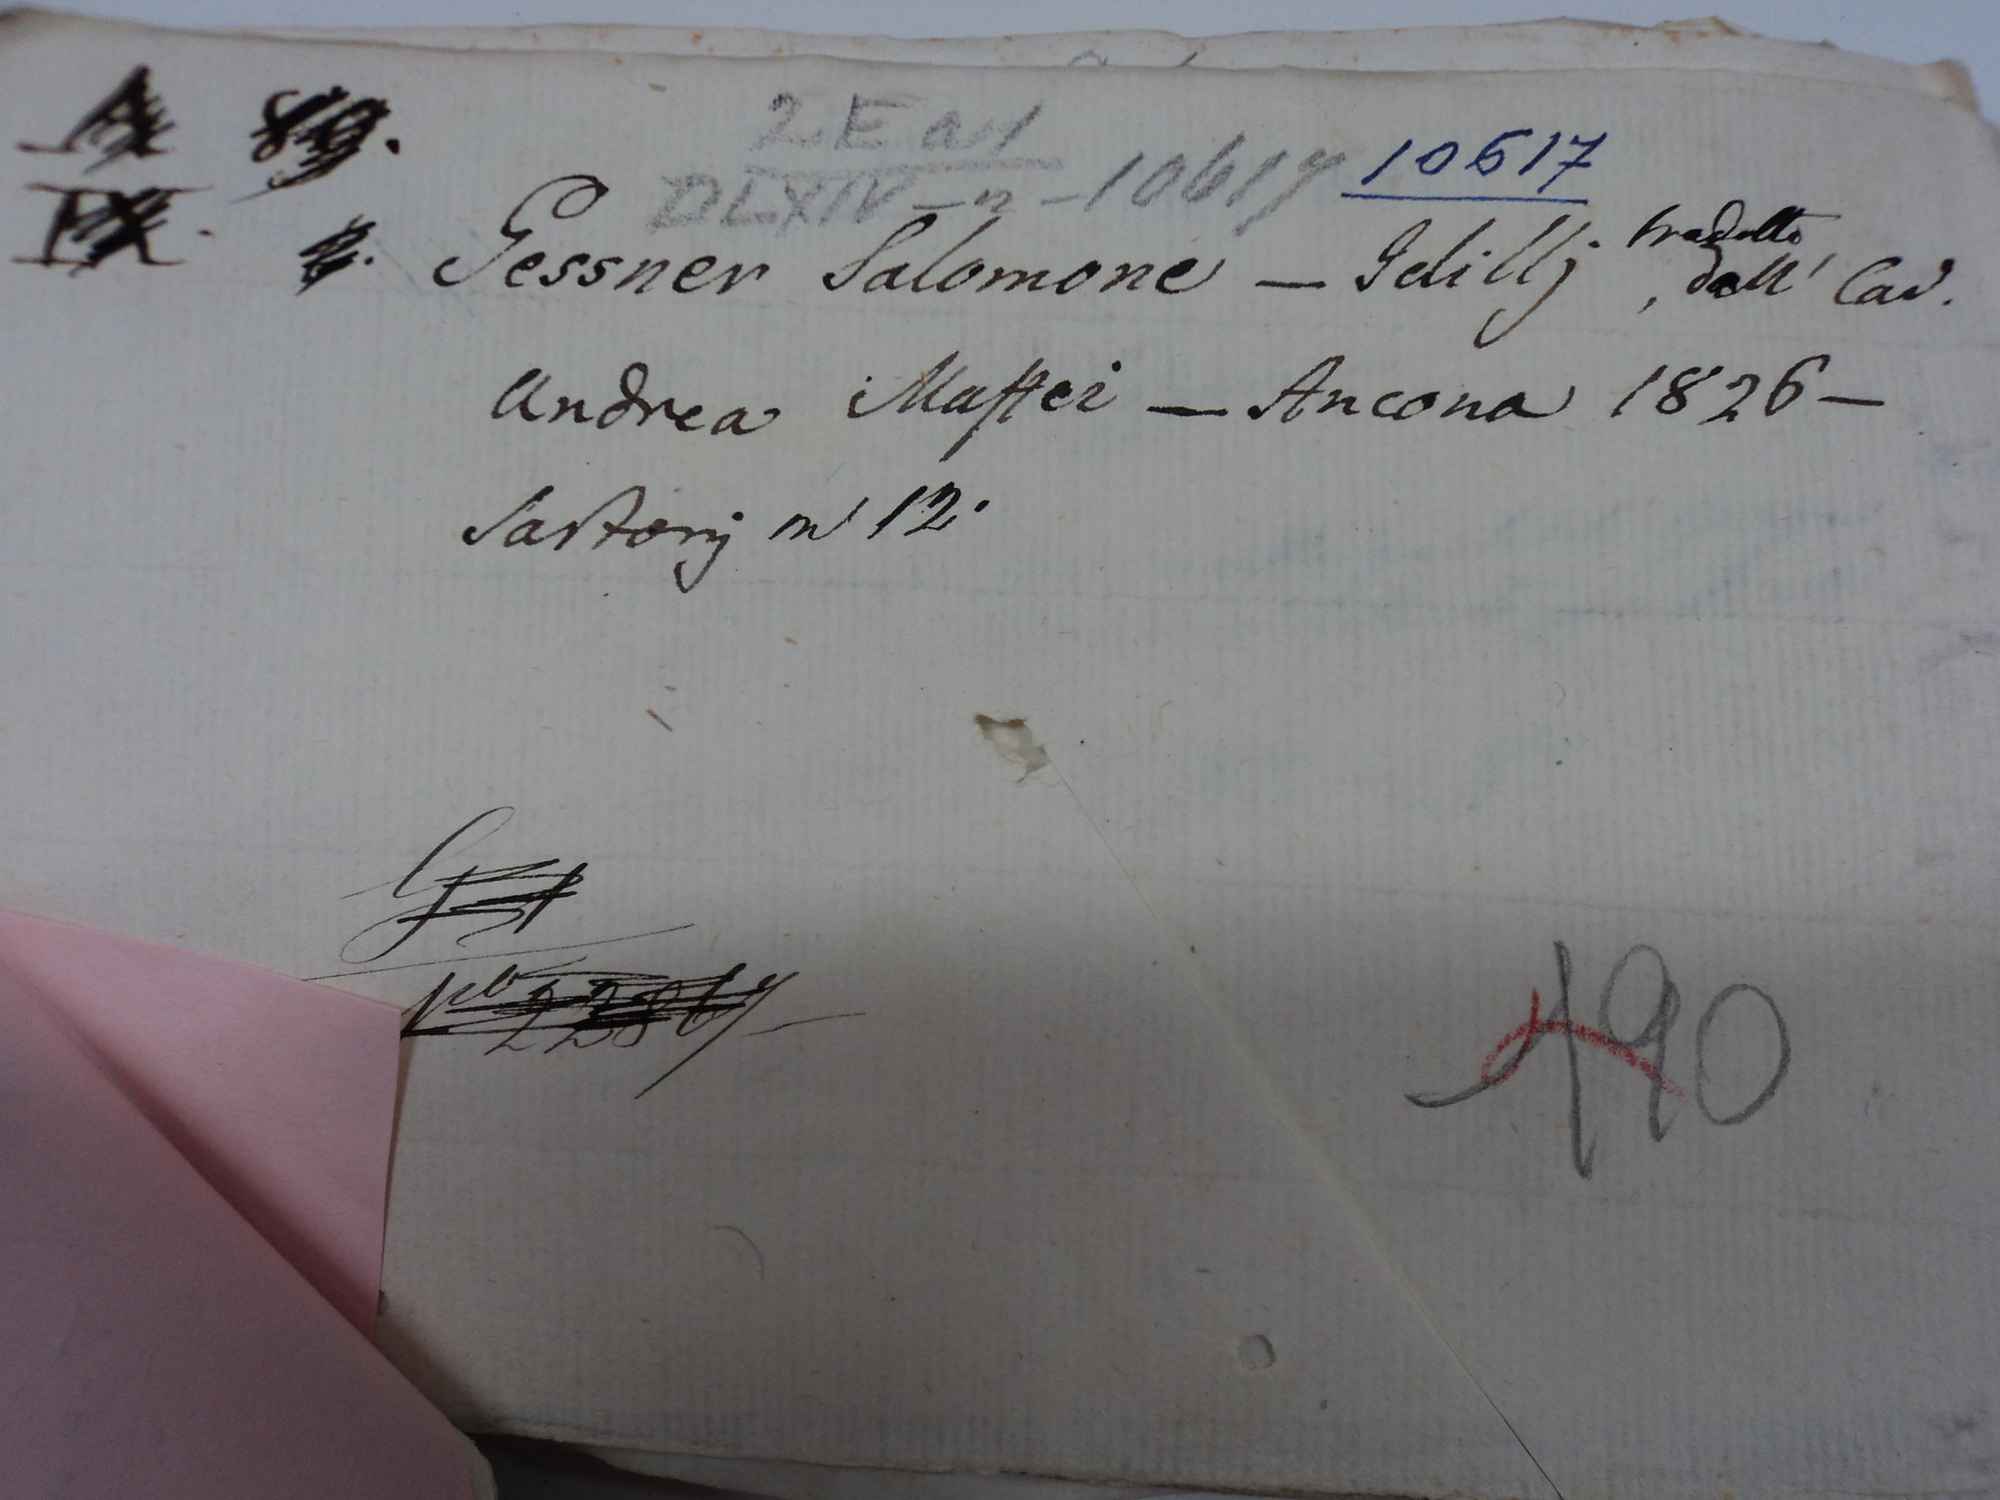 A 89.
IX.
2 E a 1
DLXIV - n - 10617 10617
Gessner Salomone — Idillj tradotto, dall' Cav.
Andrea Maffei — Ancona 1826 —
Sartorj in 12.
n° 22867
190